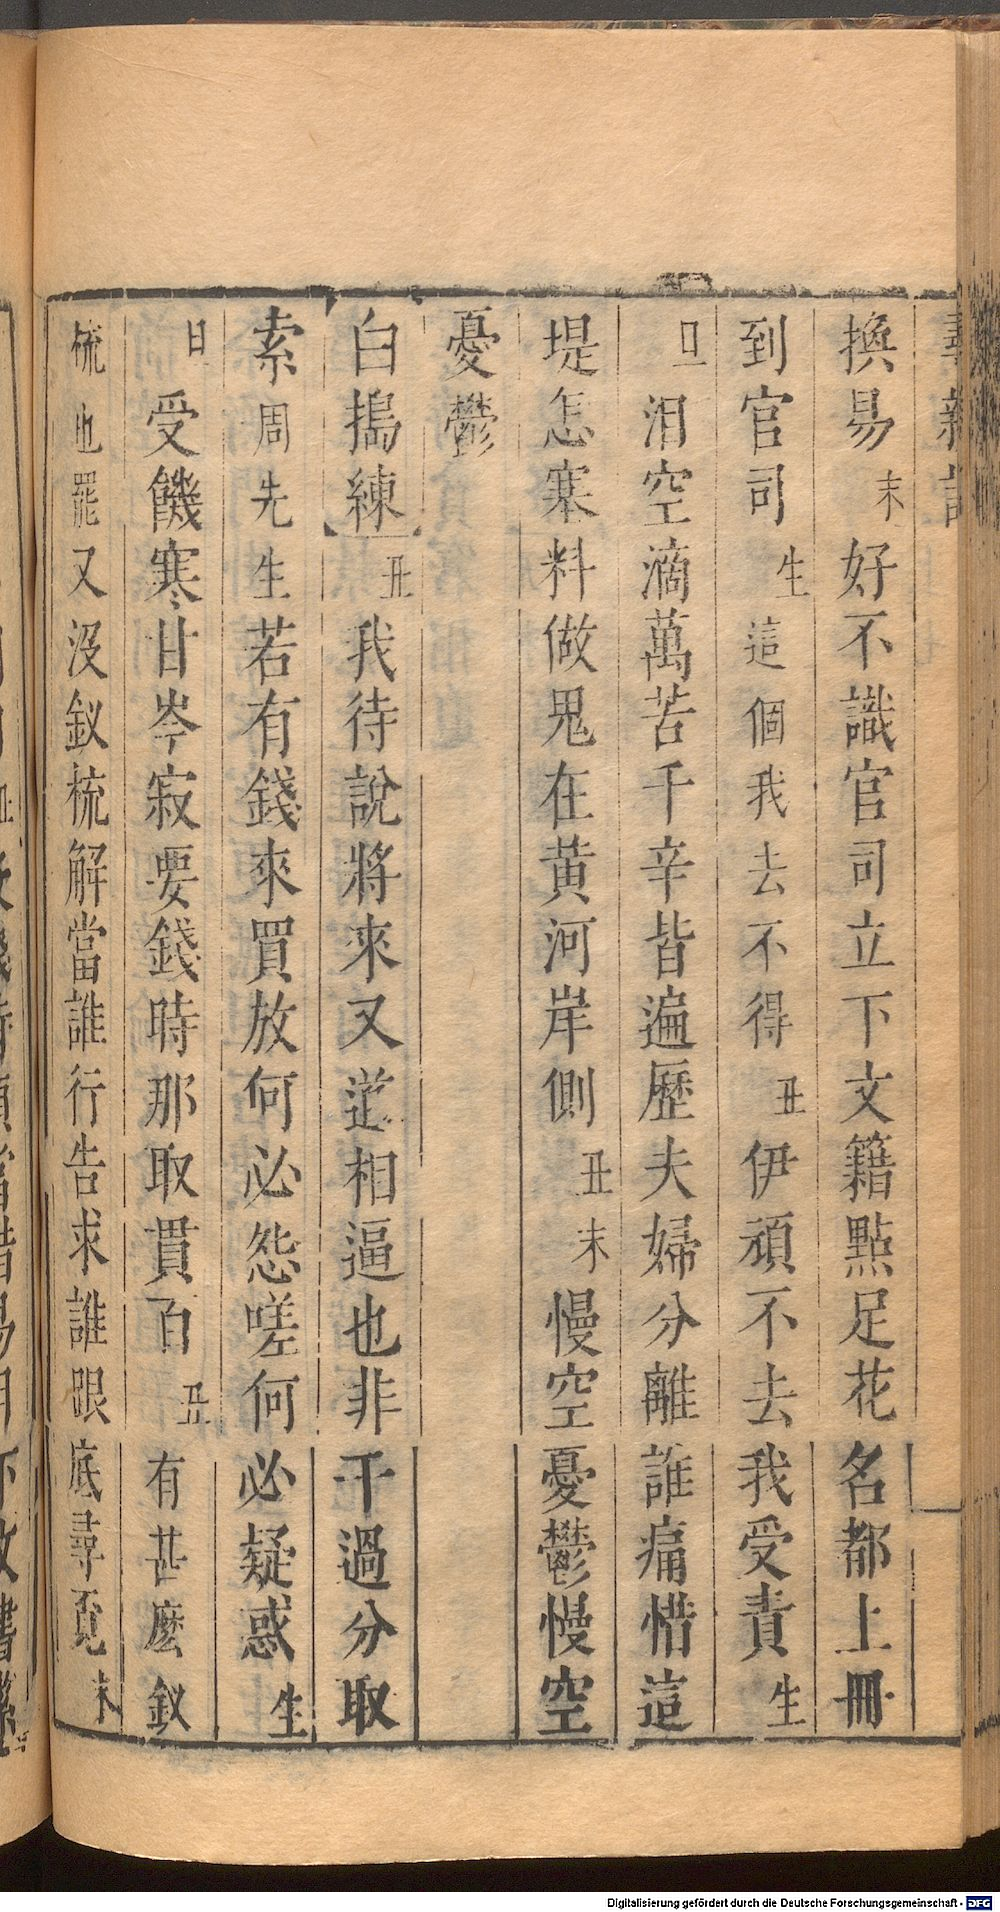 換易末好不識官司立下文籍㸃足花名都上冊
到官司生這個我去不得丑伊頑不去我受責生
淚空滴萬苦千辛皆遍歷夫婦分離誰痛惜這
堤怎寨料做鬼在黃河岸側丑末慢空憂鬱慢空
憂鬱
白搗練丑我待說將來又道相逼也非干過分取
索周先生若有錢來買放何必怨嗟何必疑惑生
受饑寒甘岑寂要錢時那取貫百丑有甚麽釵
梳也罷又沒釵梳解當誰行告求誰跟底尋覓末
Digitalisierung gefördert durch die Deutsche Forschungsgemeinschaft - DFG